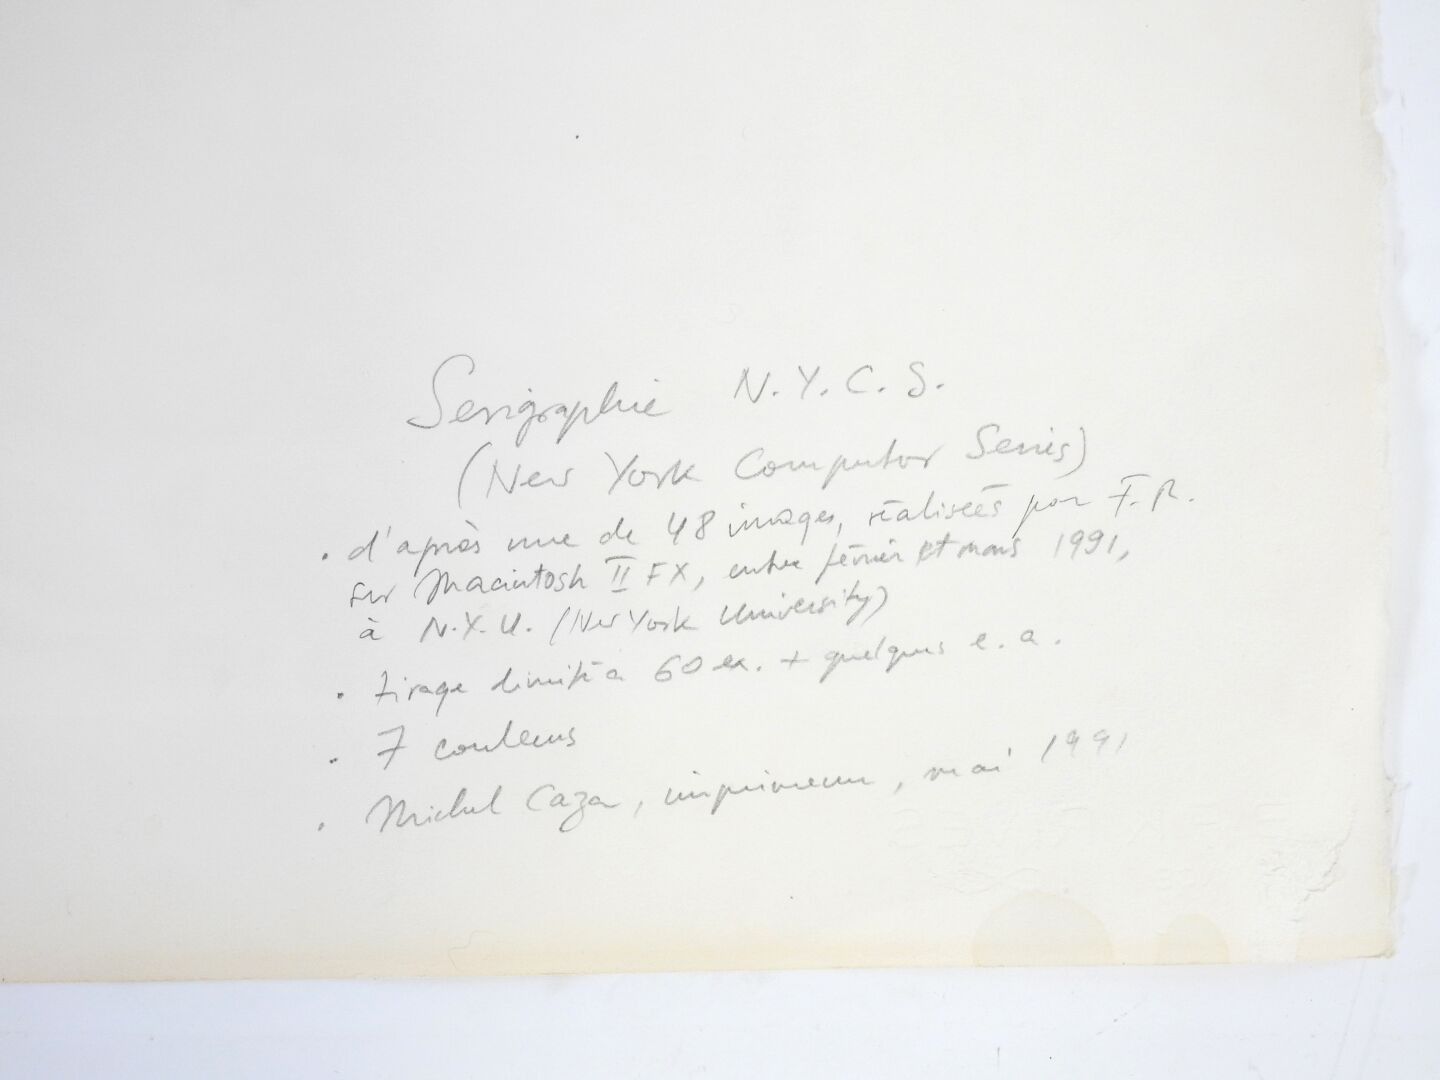 Serigraphie N.Y.C.S.
(New York Computer Series)
• d'après une de 48 images, réalisées par F.R.
sur Macintosh II FX, entre février et mars 1991,
à N.Y.U. (New York University)
• tirage limité à 60 ex. + quelques e.a.
• 7 couleurs
• Michel Caza, imprimeur, mai 1991